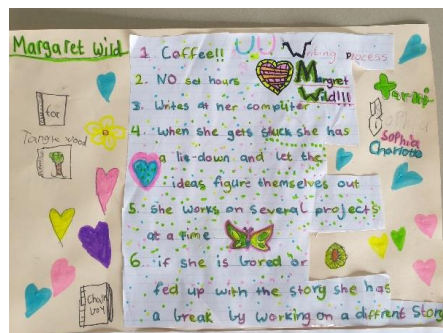 Margaret Wild
Writing Process
Margret
Wild!!!
1. Coffee!!
2. NO set hours
3. Writes at her computer
4. when she gets stuck she has
a lie-down and let the
ideas figure themselves out
5. she works on several projects
at a time
6. if she is bored or
fed up with the story she has
a break by working on a diffrent story
fox
Tanglewood
Chalk boy
Sophia
Charlotte